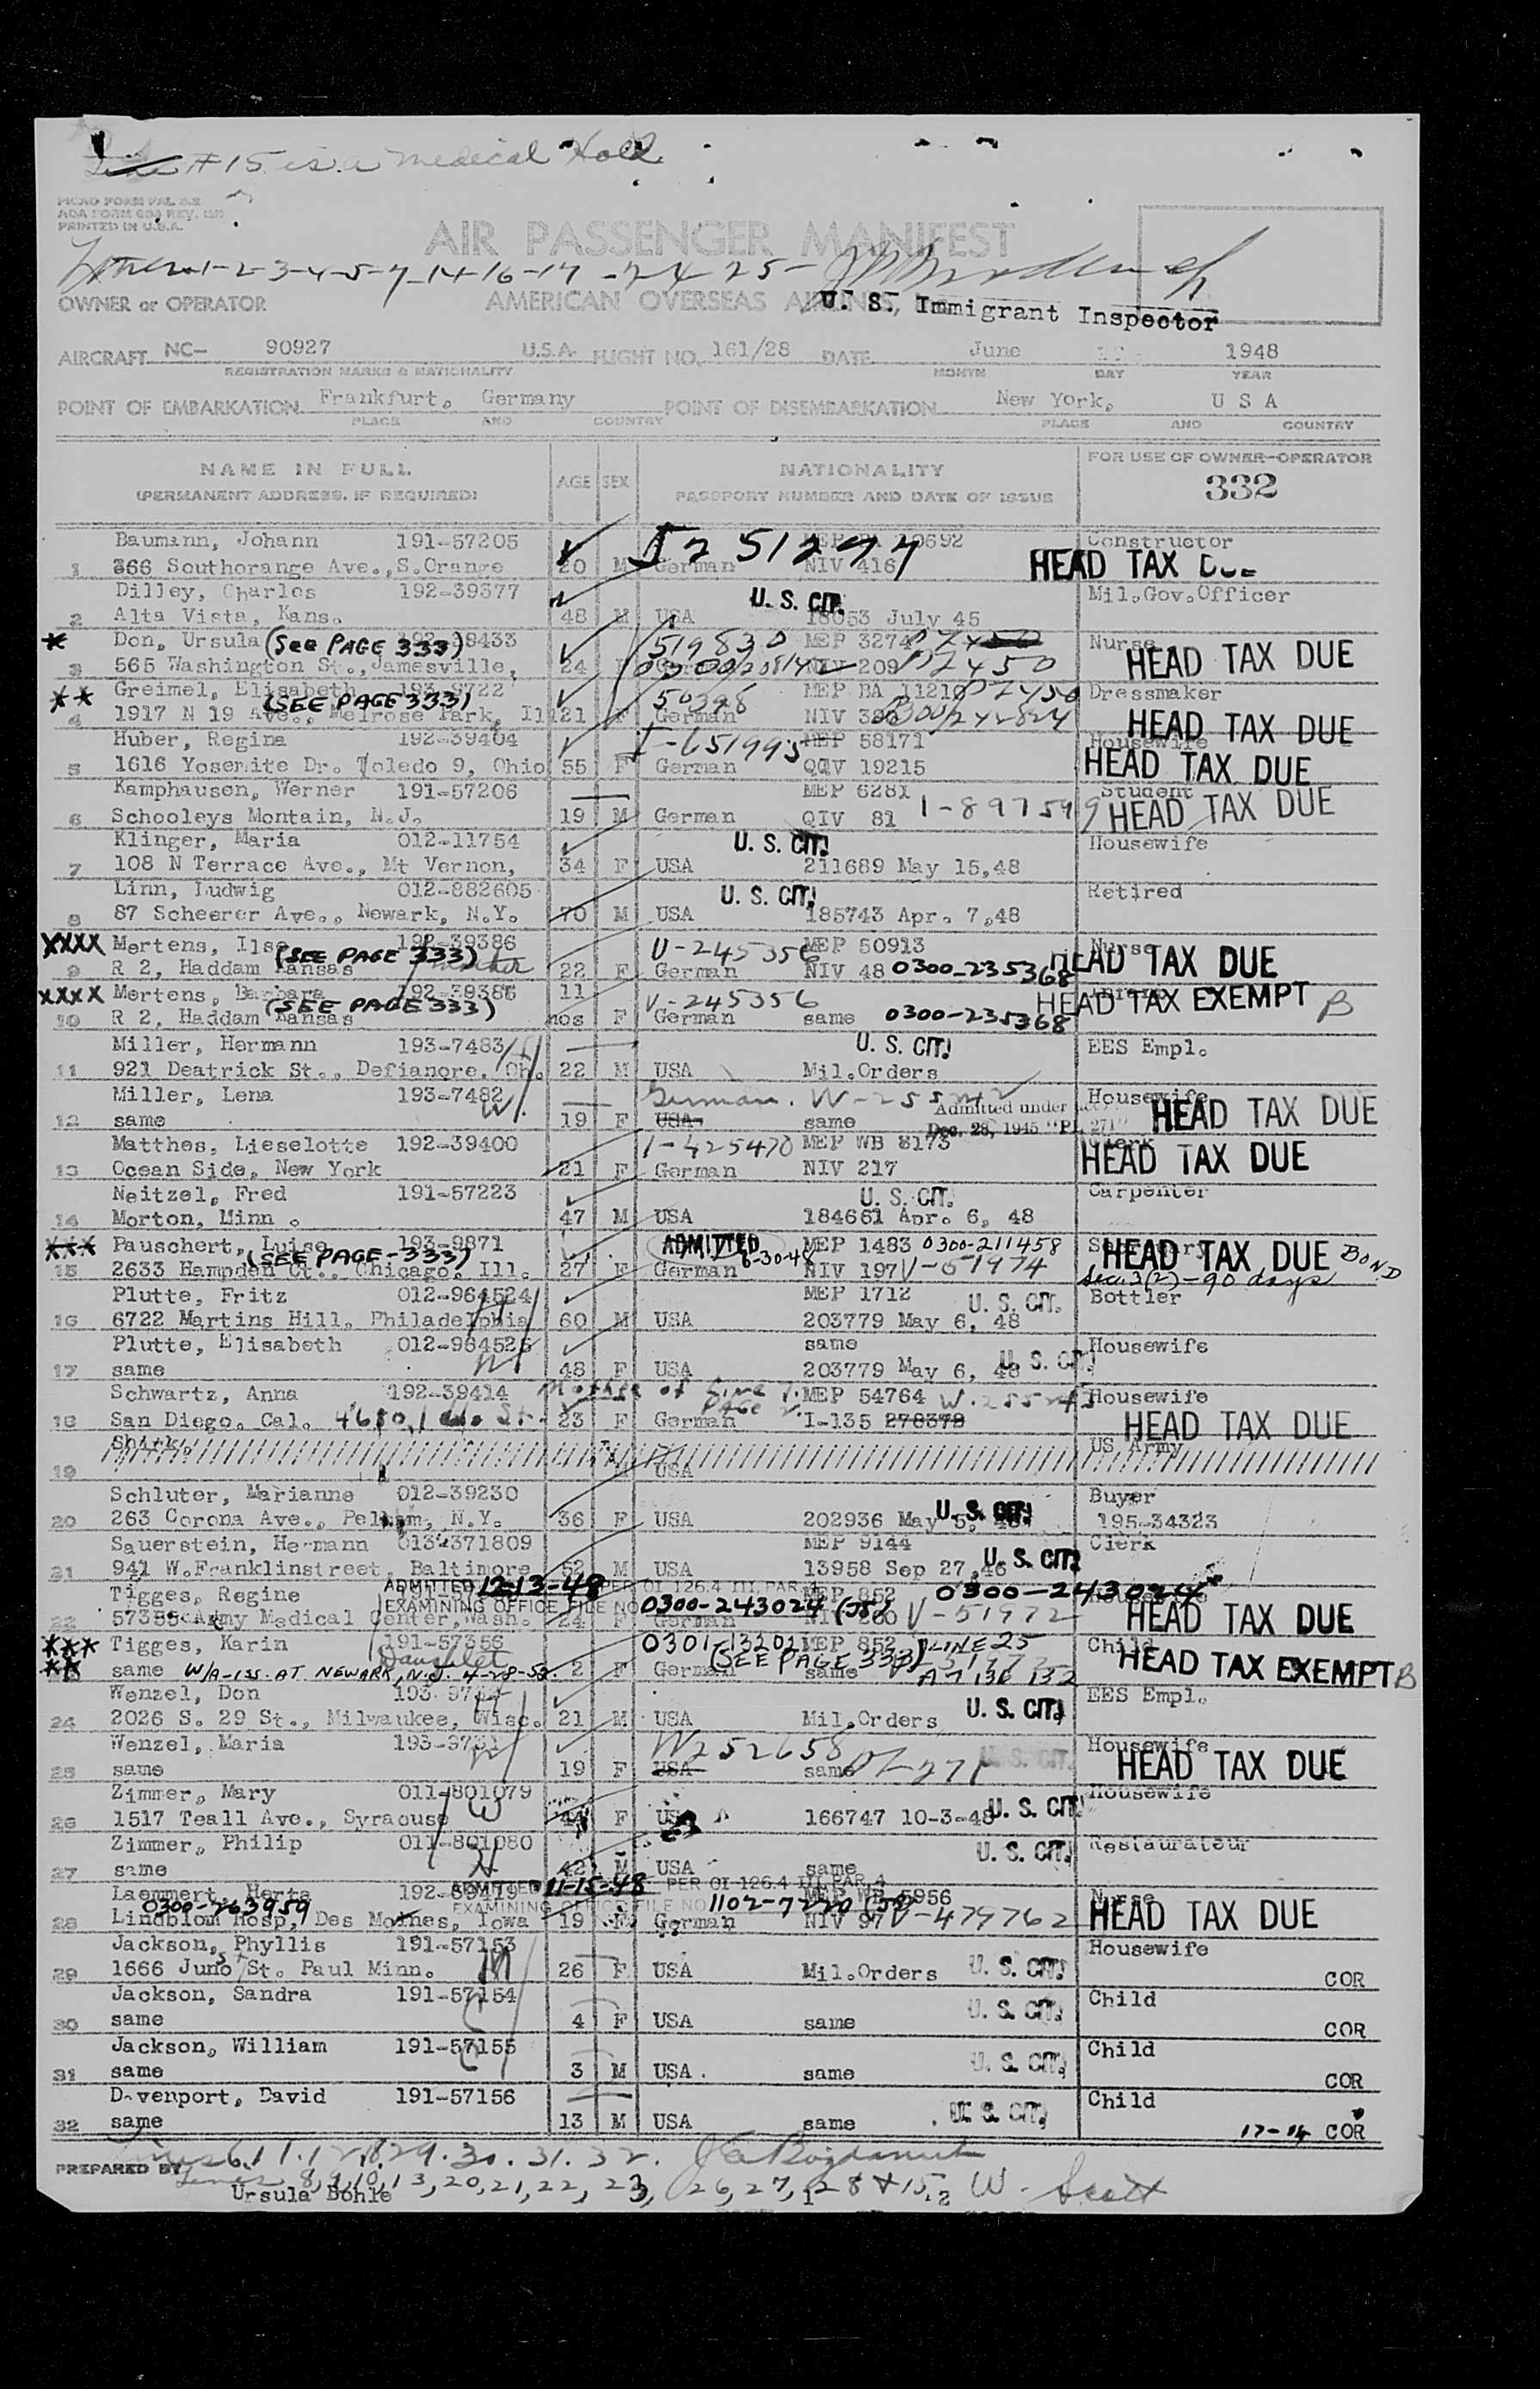 # 15 is a medical Hold
PICAO FORM PAL 2.2
PRINTED IN U.S.A.
AIR PASSENGER MANIFEST
Lines 1-2-3-4-5-7-14-16-17-24-25-
OWNER or OPERATOR AMERICAN OVERSEAS AIRLINES,
U. S. Immigrant Inspector
AIRCRAFT NC- 90927 U.S.A. FLIGHT NO. 161/28 DATE June 1948
REGISTRATION MARKS & NATIONALITY MONTH DAY YEAR
POINT OF EMBARKATION Frankfurt, Germany POINT OF DISEMBARKATION New York, U S A
PLACE AND COUNTRY PLACE AND COUNTRY
NAME IN FULL AGE SEX NATIONALITY FOR USE OF OWNER-OPERATOR
(PERMANENT ADDRESS, IF REQUIRED) PASSPORT NUMBER AND DATE OF ISSUE 332
Baumann, Johann 191-57205 Constructor
1 366 Southorange Ave., S.Orange 20 M German NIV 416 HEAD TAX DUE
Dilley, Charles 192-39377 U. S. CIT. Mil.Gov.Officer
2 Alta Vista, Kans. 48 M USA 18053 July 45
* Don, Ursula (See PAGE 333) 519830 MEP 3274 Nurse
3 565 Washington St., Jamesville, 24 NIV 209 P2450 HEAD TAX DUE
** Greimel, Elisabeth 193-9722 (SEE PAGE 333) 50398 MEP BA 11210 P2450 Dressmaker
4 1917 N 19 Ave., Melrose Park, Ill 21 F German HEAD TAX DUE
Huber, Regina 192-39404 I-651995 MEP 58171 Housewife
5 1616 Yosemite Dr. Toledo 9, Ohio 55 F German QQV 19215 HEAD TAX DUE
Kamphausen, Werner 191-57206 MEP 6281 Student
6 Schooleys Montain, N.J. 19 M German QIV 81 1-897599 HEAD TAX DUE
Klinger, Maria 012-11754 U. S. CIT. Housewife
7 108 N Terrace Ave., Mt Vernon, 34 F USA 211689 May 15,48
Linn, Ludwig 012-882605 U. S. CIT. Retired
8 87 Scheerer Ave., Newark, N.Y. 70 M USA 185743 Apr. 7,48
XXXX Mertens, Ilse 192-39386 (SEE PAGE 333) V-245356 MEP 50913 Nurse
9 R 2, Haddam Kansas mother 22 F German NIV 48 0300-235368 HEAD TAX DUE
XXXX Mertens, Barbara 192-39385 (SEE PAGE 333) 11 V-245356 HEAD TAX EXEMPT B
10 R 2, Haddam Kansas mos F German same 0300-235368
Miller, Hermann 193-7483 U. S. CIT. EES Empl.
11 921 Deatrick St., Defianore, Oh. 22 M USA Mil.Orders
Miller, Lena 193-7482 German. W-255242 Housewife
12 same W 19 F USA same Admitted under Dec. 28, 1945 "PL 271" HEAD TAX DUE
Matthes, Lieselotte 192-39400 1-425470 MEP WB 8173 Clerk
13 Ocean Side, New York 21 F German NIV 217 HEAD TAX DUE
Neitzel, Fred 191-57223 U. S. CIT. Carpenter
14 Morton, Minn . 47 M USA 184661 Apr. 6, 48
XXX Pauschert, Luise 193-9871 (SEE PAGE-333) ADMITTED 6-30-48 MEP 1483 0300-211458 HEAD TAX DUE BOND
15 2633 Hampden Ct., Chicago, Ill. 27 F German NIV 197 V-51974 Sec. 3(2)-90 days
Plutte, Fritz 012-964524 H MEP 1712 U. S. CIT. Bottler
16 6722 Martins Hill, Philadelphia 60 M USA 203779 May 6, 48
Plutte, Elisabeth 012-964525 W same Housewife
17 same 48 F USA 203779 May 6, 48 U. S. CIT.
Schwartz, Anna 192-39414 Mother of Line MEP 54764 Housewife
18 San Diego, Cal. 23 F German I-135 278378 HEAD TAX DUE
19 USA US Army
Schluter, Marianne 012-39230 Buyer
20 263 Corona Ave., Pelham, N.Y. 36 F USA 202936 May 5, 48 U. S. CIT. 195-34323
Sauerstein, Hermann 013-371809 MEP 9144 Clerk
21 941 W.Franklinstreet, Baltimore 52 M USA 13958 Sep 27,46 U. S. CIT.
Tigges, Regine ADMITTED 12-13-48 PER OI 126.4 III, PAR. 4 MEP 852 0300-243024
EXAMINING OFFICE FILE NO 0300-243024
22 Army Medical Center, Wash. 24 F German V-51972 HEAD TAX DUE
*** Tigges, Karin 191-57356 Daughter MEP 852 LINE 25 Child
** same W/A-ISS. AT NEWARK, N.J. 4-28-52. 2 F German (SEE PAGE 333) same A7 136 132 HEAD TAX EXEMPT B
Wenzel, Don H U. S. CIT. EES Empl.
24 2026 S. 29 St., Milwaukee, Wisc. 21 M USA Mil.Orders
Wenzel, Maria W W252658 Housewife
25 same 19 F USA same PL-271 U. S. CIT. HEAD TAX DUE
Zimmer, Mary 011-801079 Housewife
26 1517 Teall Ave., Syracuse W 44 F USA 166747 10-3-48 U. S. CIT.
Zimmer, Philip 011-801080 U. S. CIT. Restaurateur
27 same H 42 M USA same
Laemmert, Herta 192-39419 ADMITTED 11-15-48 PER OI 126.4 III, PAR. 4 MEP WB 5956 Nurse
0300-263959 EXAMINING OFFICE FILE NO 1102-7220
28 Lindblom Hosp, Des Moines, Iowa 19 F German NIV 97 V-479762 HEAD TAX DUE
Jackson, Phyllis 191-57153 M Housewife
29 1666 Juno St. Paul Minn. 26 F USA Mil.Orders U. S. CIT. COR
Jackson, Sandra 191-57154 C Child
30 same 4 F USA same U. S. CIT. COR
Jackson, William 191-57155 C Child
31 same 3 M USA . same U. S. CIT. COR
Davenport, David 191-57156 Child
32 same 13 M USA same U. S. CIT. 17-14 COR
Lines 6.11.12.18.29.30.31.32.
PREPARED BY Lines 8,9,10,13,20,21,22,23,26,27,28 & 15 W. Scott
Ursula Bohle